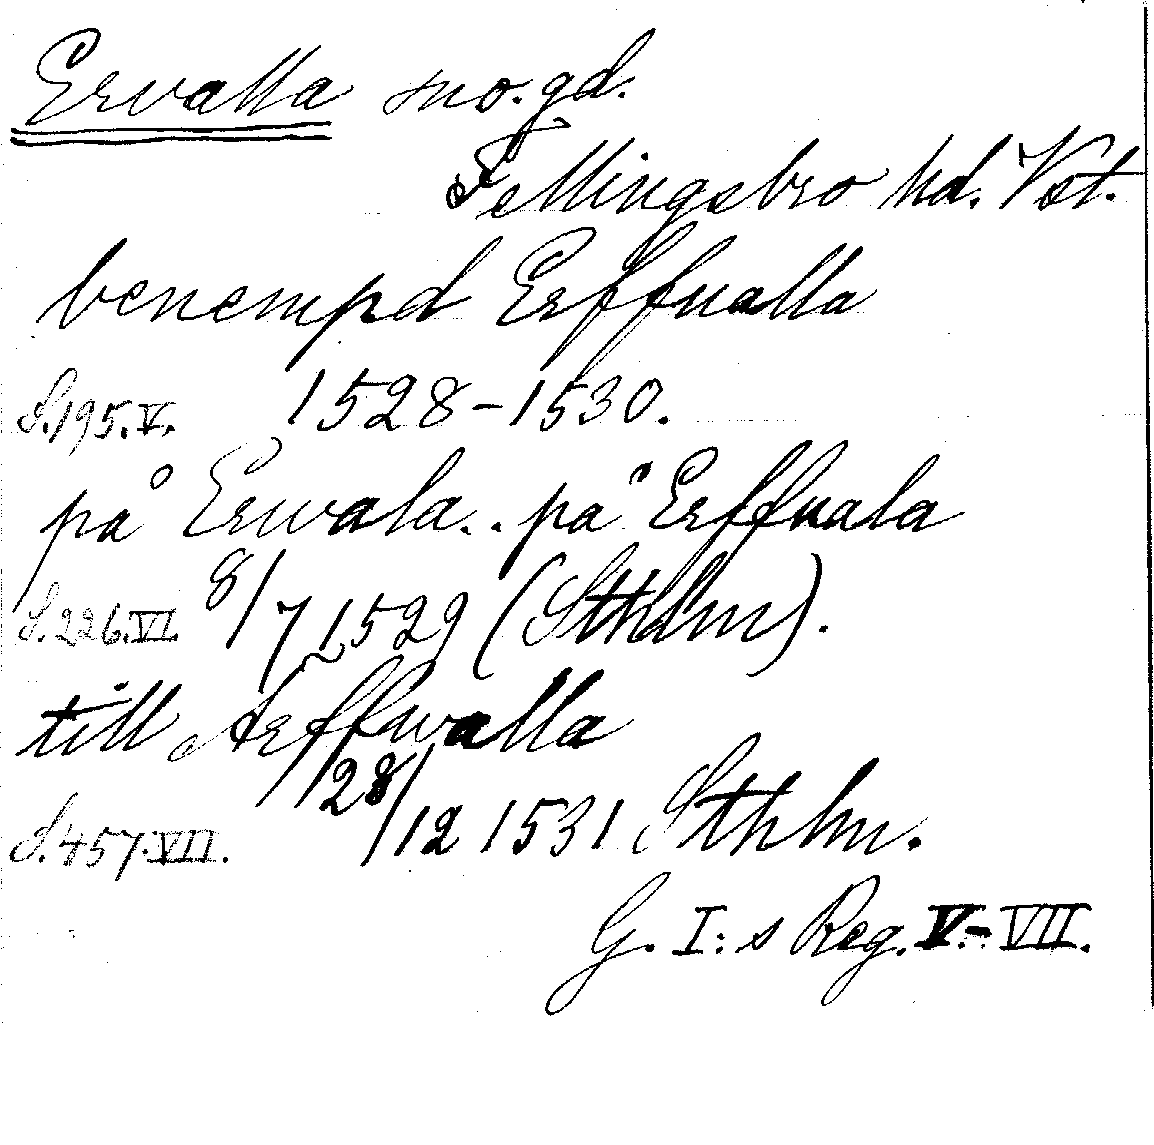 Ervalla sno.gd.
Fellingsbro hd. Vst.
benempd Erffualla
S.195.V. 1528-1530.
på Erwala.. på Erffuala
S.226.VI. 8/7 1529 (Sthlm).
till Aerffwalla
S.457.VII. 28/12 1531 Sthlm.
G. I:s Reg. V.-VII.